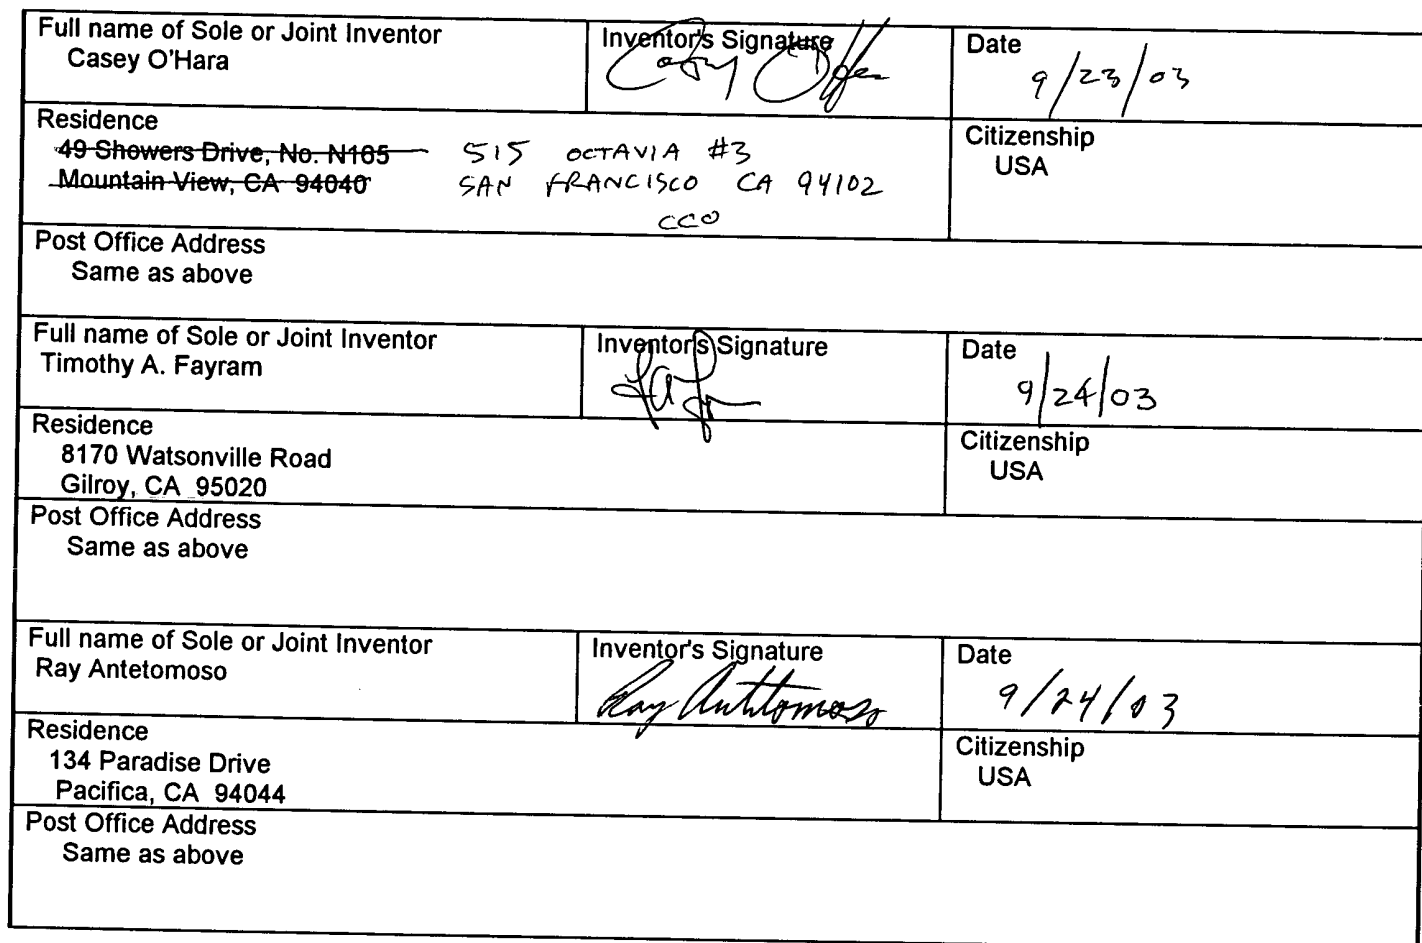 Full name of Sole or Joint Inventor
Casey O'Hara
Inventor's Signature
Date
9/23/03
Residence
49 Showers Drive, No. N165 515 OCTAVIA #3
Mountain View, CA 94040 SAN FRANCISCO CA 94102
CCO
Citizenship
USA
Post Office Address
Same as above
Full name of Sole or Joint Inventor
Timothy A. Fayram
Inventor's Signature
Date
9/24/03
Residence
8170 Watsonville Road
Gilroy, CA 95020
Citizenship
USA
Post Office Address
Same as above
Full name of Sole or Joint Inventor
Ray Antetomoso
Inventor's Signature
Ray Antetomoso
Date
9/24/03
Residence
134 Paradise Drive
Pacifica, CA 94044
Citizenship
USA
Post Office Address
Same as above